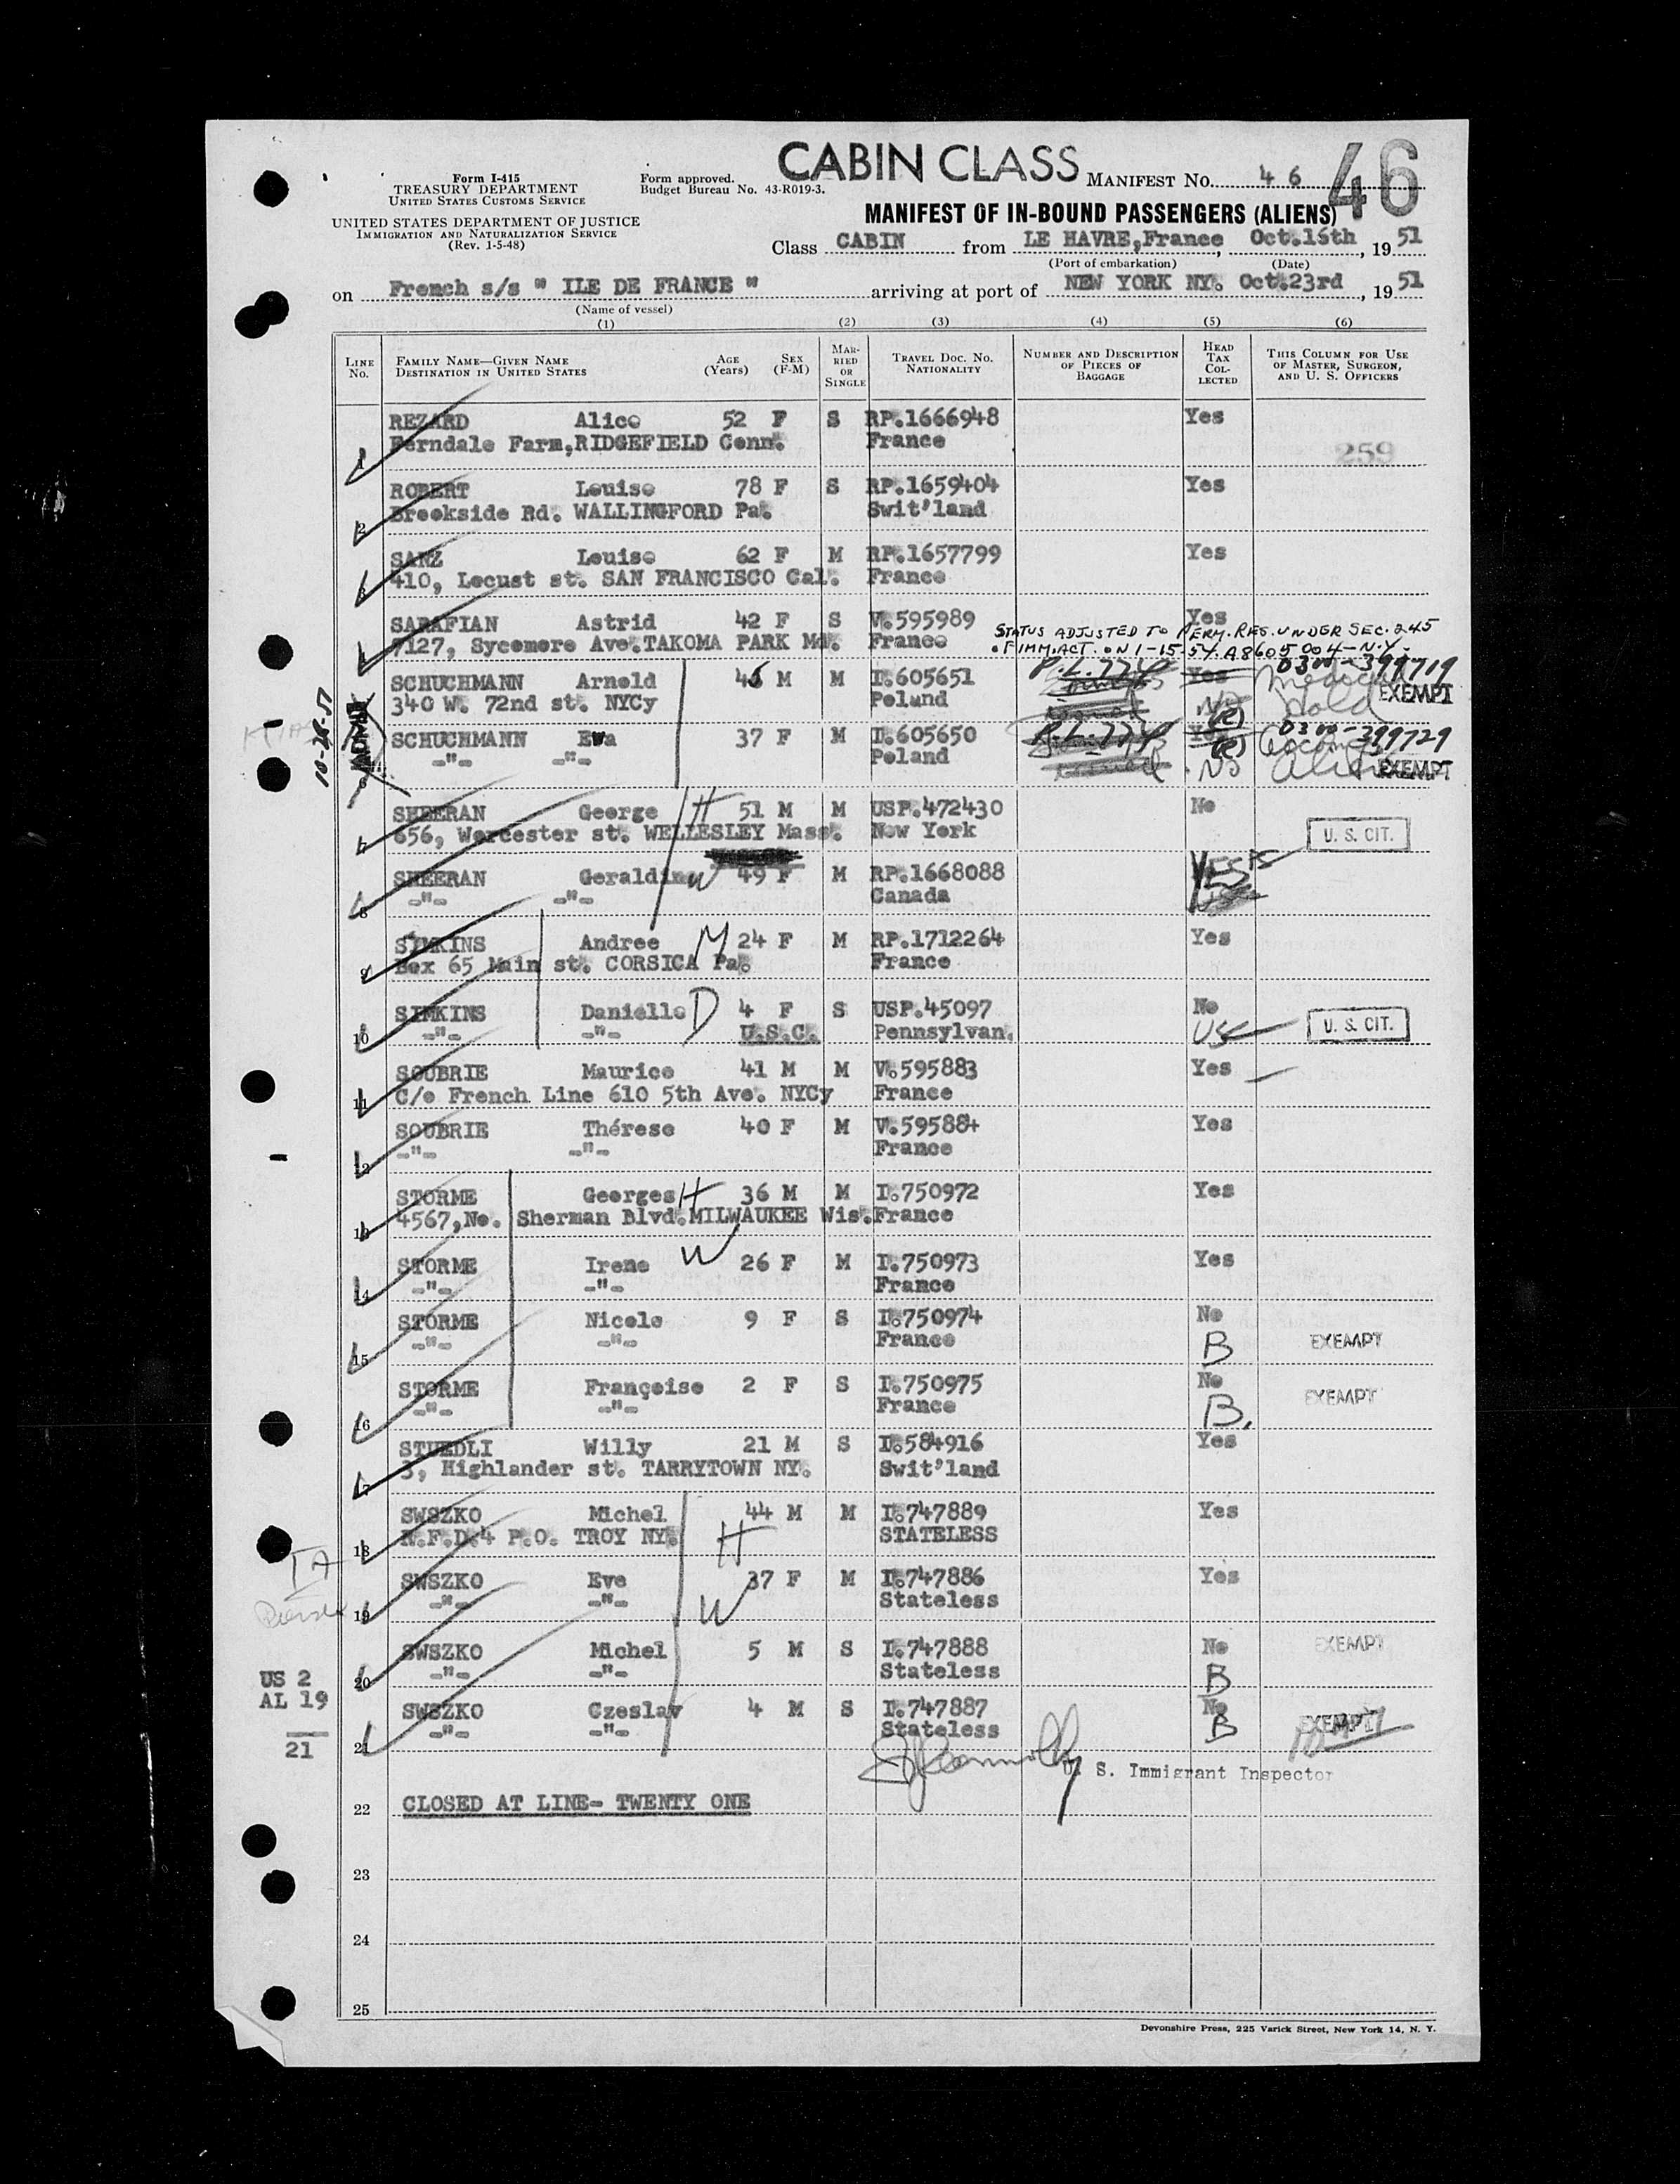 CABIN CLASS
46
Form I-415
TREASURY DEPARTMENT
UNITED STATES CUSTOMS SERVICE
Form approved.
Budget Bureau No. 43-R019-3.
MANIFEST No. 46
UNITED STATES DEPARTMENT OF JUSTICE
IMMIGRATION AND NATURALIZATION SERVICE
(Rev. 1-5-48)
MANIFEST OF IN-BOUND PASSENGERS (ALIENS)
Class CABIN from LE HAVRE,France, Oct.16th, 19 51
(Port of embarkation) (Date)
on French s/s " ILE DE FRANCE " arriving at port of NEW YORK NY. Oct.23rd, 19 51
(Name of vessel)
(1) (2) (3) (4) (5) (6)
LINE No. FAMILY NAME—GIVEN NAME DESTINATION IN UNITED STATES AGE (Years) SEX (F-M) MARRIED OR SINGLE TRAVEL DOC. NO. NATIONALITY NUMBER AND DESCRIPTION OF PIECES OF BAGGAGE HEAD TAX COLLECTED THIS COLUMN FOR USE OF MASTER, SURGEON, AND U. S. OFFICERS
1 REZARD Alice 52 F S RP.1666948 Yes
Ferndale Farm,RIDGEFIELD Conn. France 259
2 ROBERT Louise 78 F S RP.1659404 Yes
Brookside Rd. WALLINGFORD Pa. Swit'land
3 SANZ Louise 62 F M RP.1657799 Yes
410, Locust st. SAN FRANCISCO Cal. France
SARAFIAN Astrid 42 F S V.595989 Yes
7127, Sycomore Ave.TAKOMA PARK Md. France
STATUS ADJUSTED TO PERM. RES. UNDER SEC. 245
OF IMM. ACT. ON 1-15-54. A8605004-N.Y.
SCHUCHMANN Arnold 46 M M I.605651 P.L. 774 Yes 0300-399719
340 W. 72nd st. NYCy Poland No (R) Medical Hold EXEMPT
10-26-51
SCHUCHMANN Eva 37 F M I.605650 P.L. 774 Yes 0300-399729
-"- -"- Poland (R) No EXEMPT
7 SHEERAN George H 51 M M USP.472430 No
656, Worcester st. WELLESLEY Mass. New York U. S. CIT.
8 SHEERAN Geraldine W 49 F M RP.1668088 YES
-"- -"- Canada
9 SIMKINS Andree M 24 F M RP.1712264 Yes
Box 65 Main st. CORSICA Pa. France
10 SIMKINS Danièlle D 4 F S USP.45097 No
-"- -"- U.S.C. Pennsylvan. USC U. S. CIT.
11 SOUBRIE Maurice 41 M M V.595883 Yes
C/o French Line 610 5th Ave. NYCy France
12 SOUBRIE Thérese 40 F M V.595884 Yes
-"- -"- France
13 STORME Georges H 36 M M I.750972 Yes
4567,No. Sherman Blvd.MILWAUKEE Wis.France
14 STORME Irene W 26 F M I.750973 Yes
-"- -"- France
15 STORME Nicole 9 F S I.750974 No
-"- -"- France B EXEMPT
16 STORME Françoise 2 F S I.750975 No
-"- -"- France B. EXEMPT
17 STUEDLI Willy 21 M S I.584916 Yes
3, Highlander st. TARRYTOWN NY. Swit'land
18 SWSZKO Michel 44 M M I.747889 Yes
R.F.D.4 P.O. TROY NY. H STATELESS
19 SWSZKO Eve 37 F M I.747886 Yes
-"- -"- W Stateless
20 SWSZKO Michel 5 M S I.747888 No EXEMPT
-"- -"- Stateless B
21 SWSZKO Czeslav 4 M S I.747887 No
-"- -"- Stateless B EXEMPT
US 2
AL 19
21
U. S. Immigrant Inspector
22 CLOSED AT LINE- TWENTY ONE
23
24
25
Devonshire Press, 225 Varick Street, New York 14, N. Y.